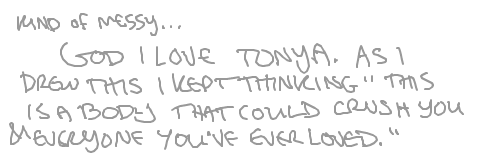 KIND OF MESSY...
GOD I LOVE TONYA. AS I
DREW THIS I KEPT THINKING "THIS
IS A BODY THAT COULD CRUSH YOU
& EVERYONE YOU'VE EVER LOVED."